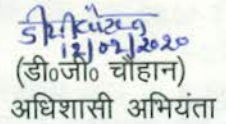 12/02/2020
(डी०जी० चौहान)
अधिशासी अभियंता